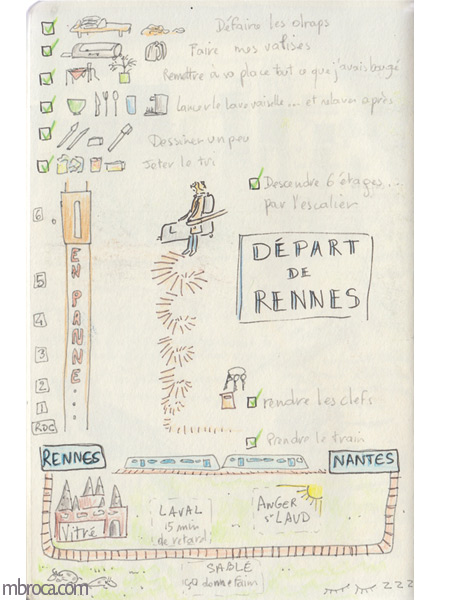 Défaire les draps
Faire mes valises
Remettre à sa place tout ce que j'avais bougé
Lancer le lave vaisselle... et relaver après
Dessiner un peu
Jeter le tri
Descendre 6 étages...
par l'escalier
6
5
4
3
2
1
RDC
EN PANNE...
DÉPART
DE
RENNES
rendre les clefs
Prendre le train
RENNES
NANTES
Vitré
LAVAL
15 min
de retard
ANGER
St LAUD
SABLÉ
ça donne faim
ZZZ
mbroca.com